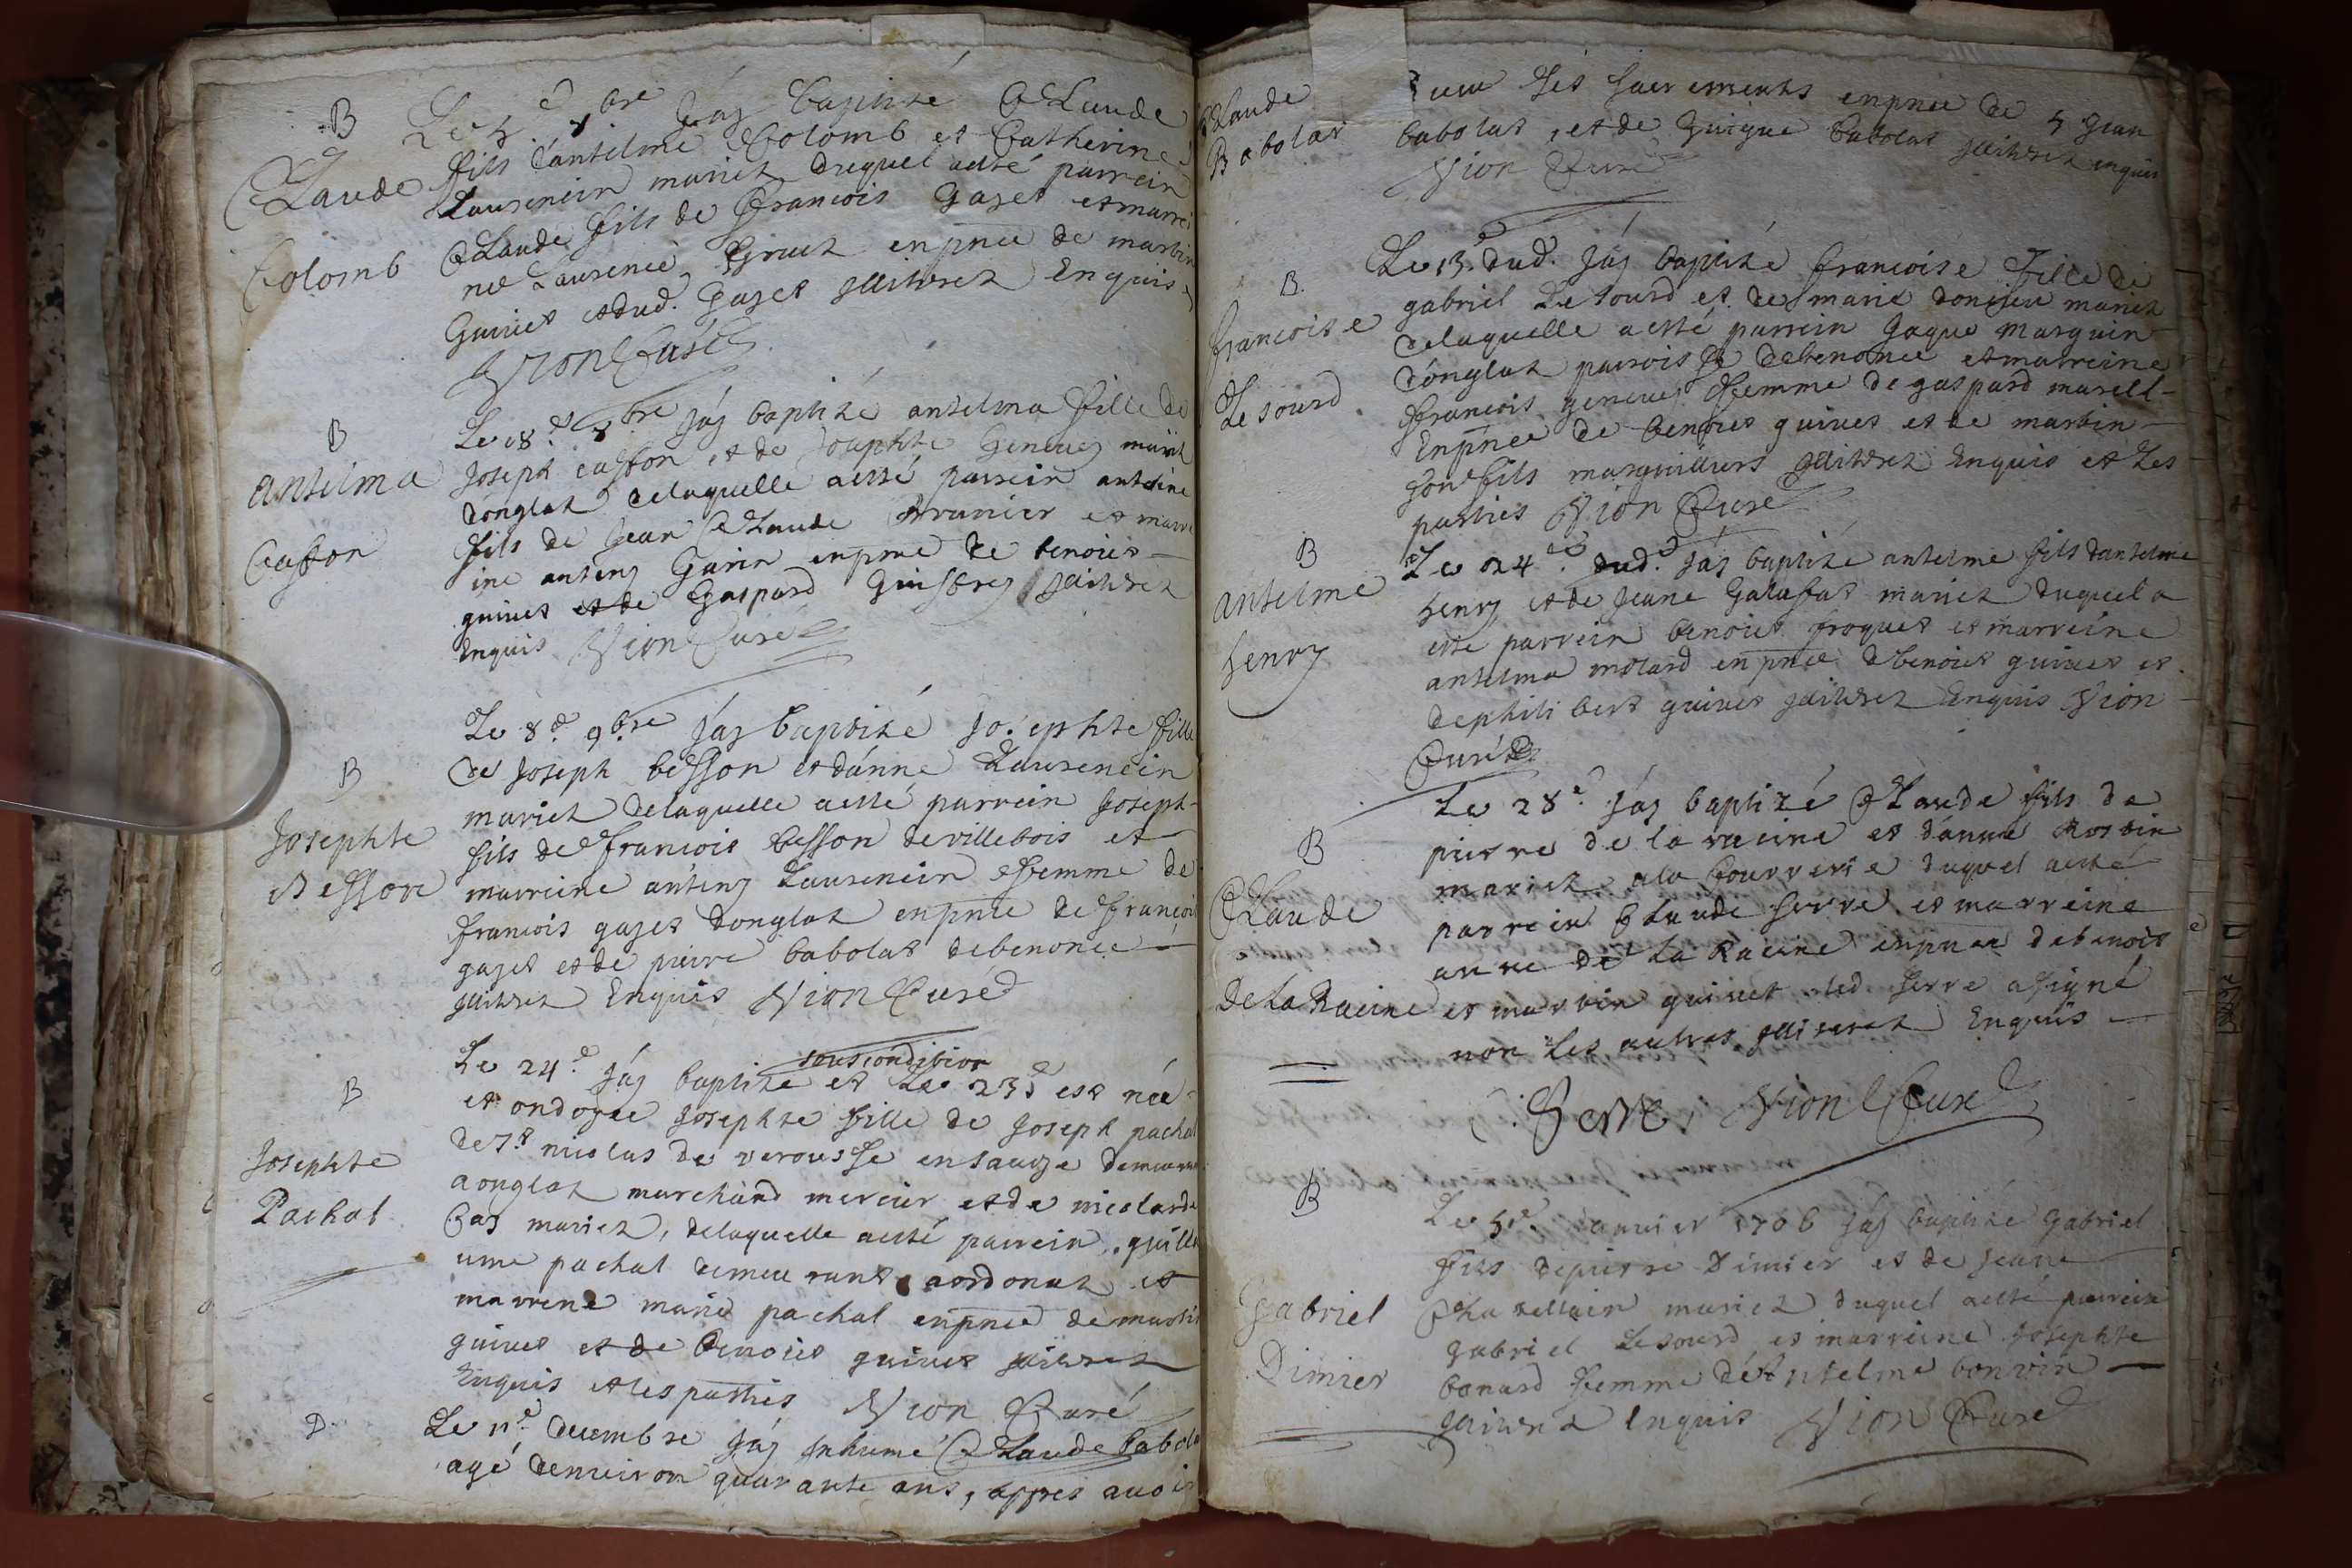 B
Claude
Colomb
Le 5.e 8bre j'ay baptizé Claude
fils d'antelme Colomb et Catherine
Laurencin mariez duquel a esté parrein
Claude fils de francois Gazet et marrei
ne Laurence enpnce de martin
Guinet et dud. Gazet illitérez Enquis
Vion Curé
B
antelma
Casson
Le 18.e 8bre j'ay baptizé antelma fille de
Joseph casson et de Josephte Geneuey mariez
d'onglas delaquelle a esté parrein antoine
fils de Jean Claude Brunier et marre
ine anteny Garin enpnce de benoict
guinet et de Gaspard illitérez
Enquis Vion Curé
B
Josephte
Besson
Le 8.e 9bre j'ay baptizé Josephte fille
de Joseph besson et d'anne Laurencin
mariez delaquelle a esté parrein Joseph
fils de francois besson de villebois et
marreine anteny Laurencin femme de
francois gazet donglas enpnce de francois
gazet et de pierre babolat debenonce
illitérez Enquis Vion Curé
B
Josephte
Pachal
sous condition
Le 24.e j'ay baptizé et Le 23.e est née
et ondoyée Josephte fille de Joseph pachal
de St nicolas de verousse en sauoye demeurant
a onglas marchand mercier et de nicolarde
bas mariez, delaquelle a esté parrein, guilla
ume pachal demeurant aordonaz et
marrene marie pachal enpnce de martin
guinet et de benoict guinet illitérez
Enquis et les parties Vion Curé
D.
Le 11.e decembre j'ay Inhumé Claude babola
agé denuiron quarante ans, appres auoir
Claude
Babolat
receu Ses sacrements enpnce de Jean
babolat, et de guigue babolat illitérez enquis
Vion Curé
B.
francoise
Le sourd
Le 13.e dud. j'ay baptizé francoise fille de
gabriel Le sourd et de marie donjeu mariez
delaquelle a esté parrein Jaque marguin
d'onglas parroisse debenonce et marreine
francois geneuey femme de gaspard marell
Enpnce de benoict guinet et de martin
son fils marguilliers illitérez Enquis et Les
parties Vion Curé
B
antelme
henry
Le 24.e dud. j'ay baptizé antelme fils dantelme
henry et de Jeane Galafat mariez duquel a
esté parrein benoict froquet et marreine
antelma molard enpnce de benoict guinet et
de philibert guinet illitérez Enquis Vion
Curé
B
Claude
De la Racine
Le 28.e j'ay baptizé Claude fils de
pierre de la racine et d'anne
mariez a la Courrerie duquel a esté
parrein Claude serre et marreine
anne de la Racine enpnce de benoict
et martin guinet led. serre a signé
non Les autres illitérez Enquis
Serre, Vion Curé
B
Gabriel
Dimier
Le 5.e Januier 1706 j'ay baptizé Gabriel
fils de pierre Dimier et de Jeane
Chatellain mariez duquel a esté parrein
gabriel Lesourd et marreine Josephte
bonard femme d'Antelme bonvin
illitérez Enquis Vion Curé